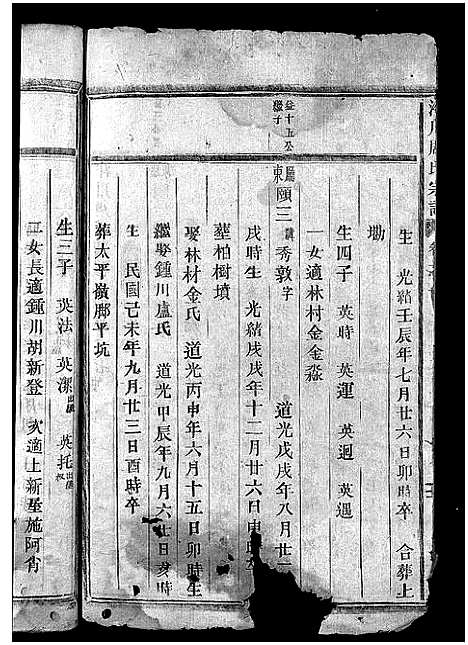 生 光緒壬辰年七月廿六日卯時卒 合葬上
坳
生四子 英時 英運 英迴 英遇
一女適林村金金淼
益十五公
繼子
東 頤三 諱秀敦字 道光戊戌年八月廿一
戌時生 光緒戊戌年十二月廿六日申時卒
葬柏樹墳
娶林村金氏 道光丙申年六月十五日卯時生
繼娶鍾川盧氏 道光甲辰年九月六廿日亥時
生 民國己未年九月廿三日酉時卒
葬太平嶺腳平坑
生三子 英法 英潔出繼 英托出繼
二女長適鍾川胡新登 次適上新屋施阿肖